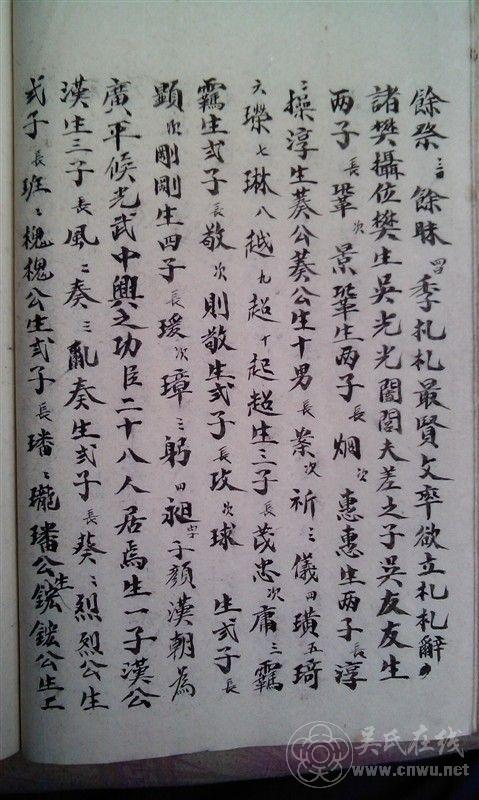 餘祭 三曰 餘昧 四 季札札最賢父卒欲立札札辭
諸樊攝位樊生吳光光闔閭夫差之子吳友友生
两子 長 鞏 次 景鞏生两子 長 烟 次 惠惠生两子 長 淳
二 操淳生葵公葵公生十男 長 案 次 祈 三 儀 四 璜 五 琦
六 瓅 七 琳 八 越 九 超 十 起超生三子 長 茂忠 次 庸 三 霸
霸生弍子 長 敬 次 則敬生弍子 長 玫 次 球 生弍子 長
顕 次 剛剛生四子 長 瑗 次 璋 三 躬 四 昶 字 子顏漢朝為
廣平候光武中興之功臣二十八人居焉生一子漢公
漢生三子 長 風 二 奏 三 亂奏生弍子 長 葵 二 烈烈公生
弍子 長 班 二 槐槐公生弍子 長 璠 二 瓏璠公生鋐鋐公生工
吴氏在线
www.cnwu.net